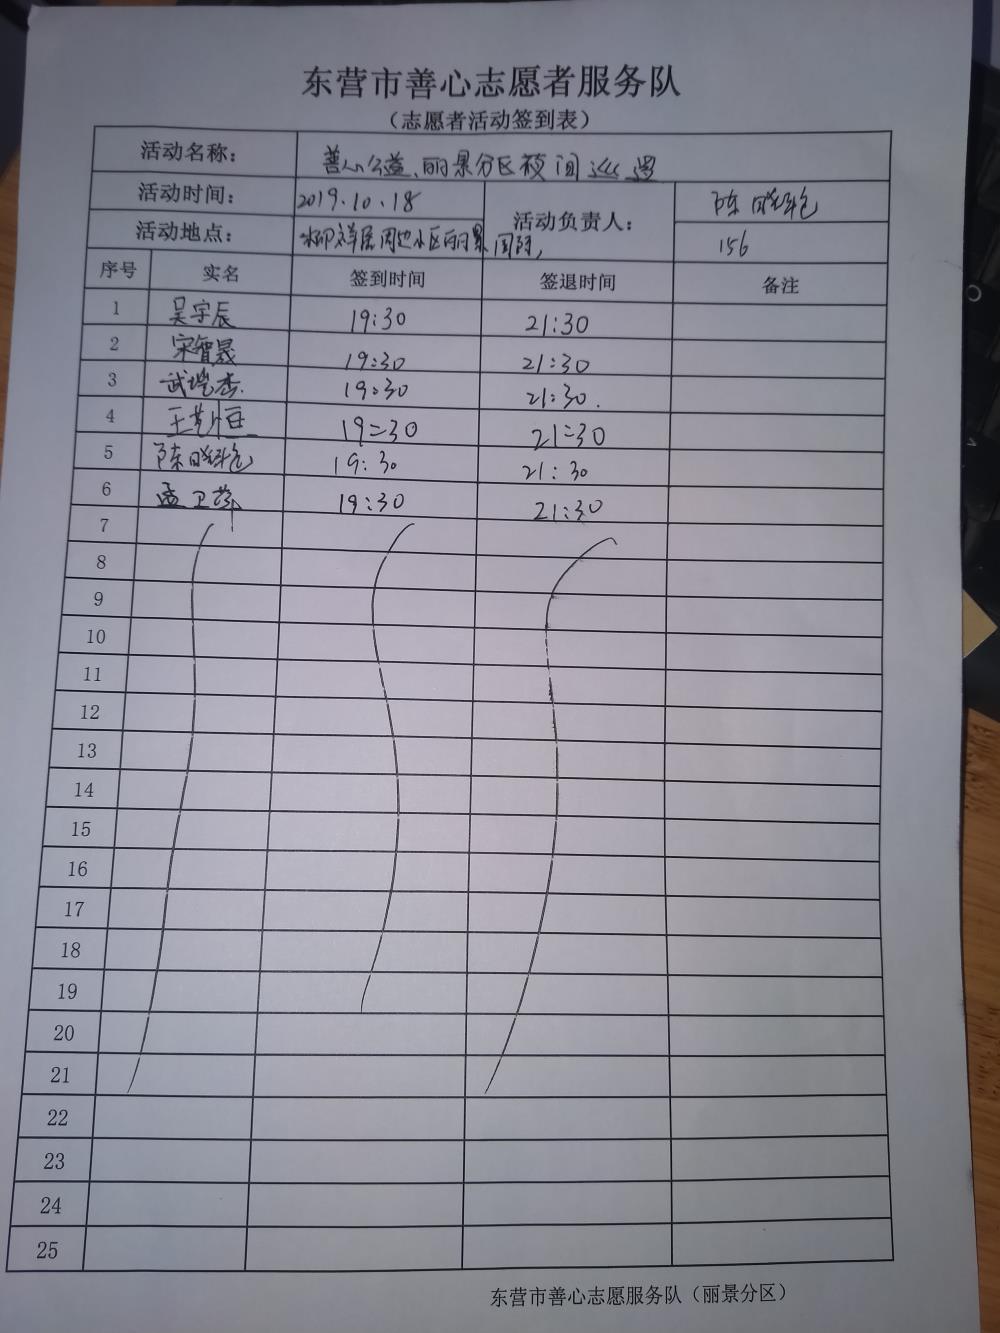 东营市善心志愿者服务队
（志愿者活动签到表）
活动名称： 善心公益、丽景分区夜间巡逻
活动时间： 2019.10.18 活动负责人： 陈
活动地点： 周边小区丽景 156
序号 实名 签到时间 签退时间 备注
1 吴宇辰 19:30 21:30
2 宋智晟 19:30 21:30
3 武 杰 19:30 21:30.
4 王 恒 19:30 21:30
5 陈 19:30 21:30
6 孟卫 19:30 21:30
7
8
9
10
11
12
13
14
15
16
17
18
19
20
21
22
23
24
25
东营市善心志愿服务队（丽景分区）